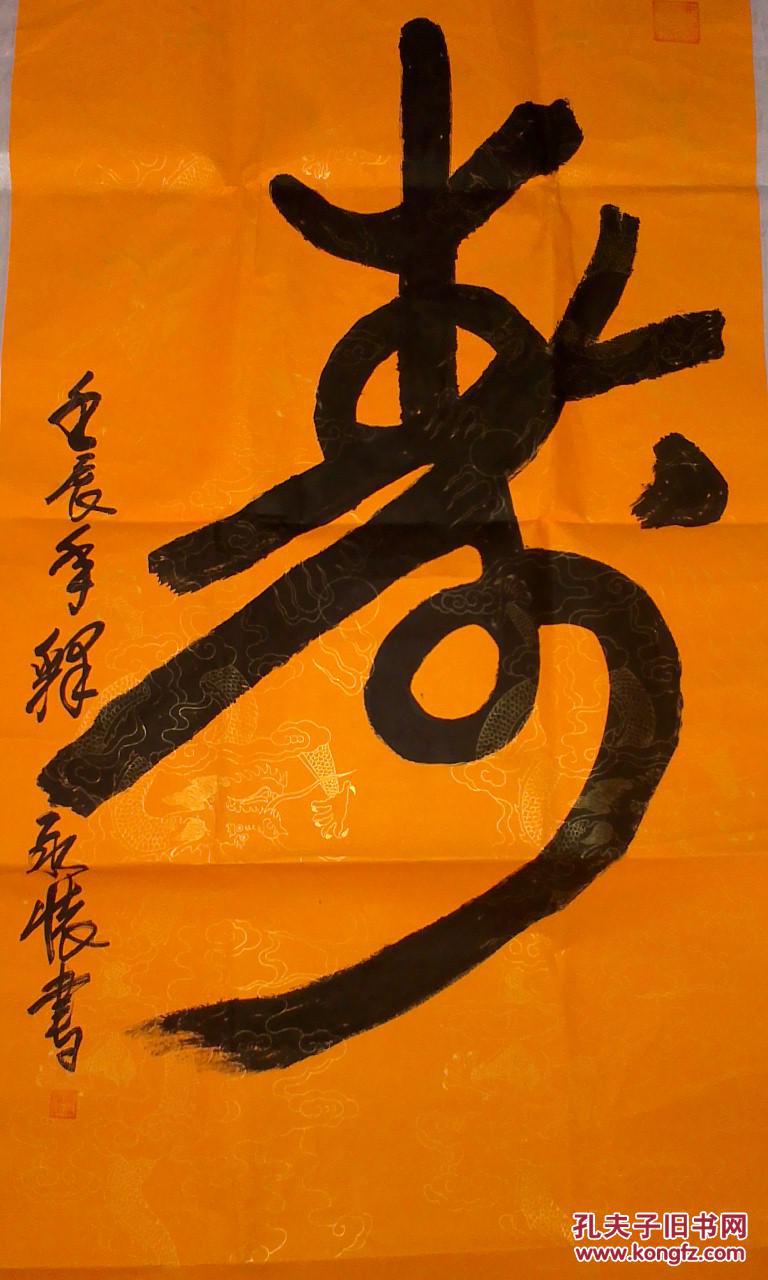 寿
壬辰年释永怀书
孔夫子旧书网
www.kongfz.com